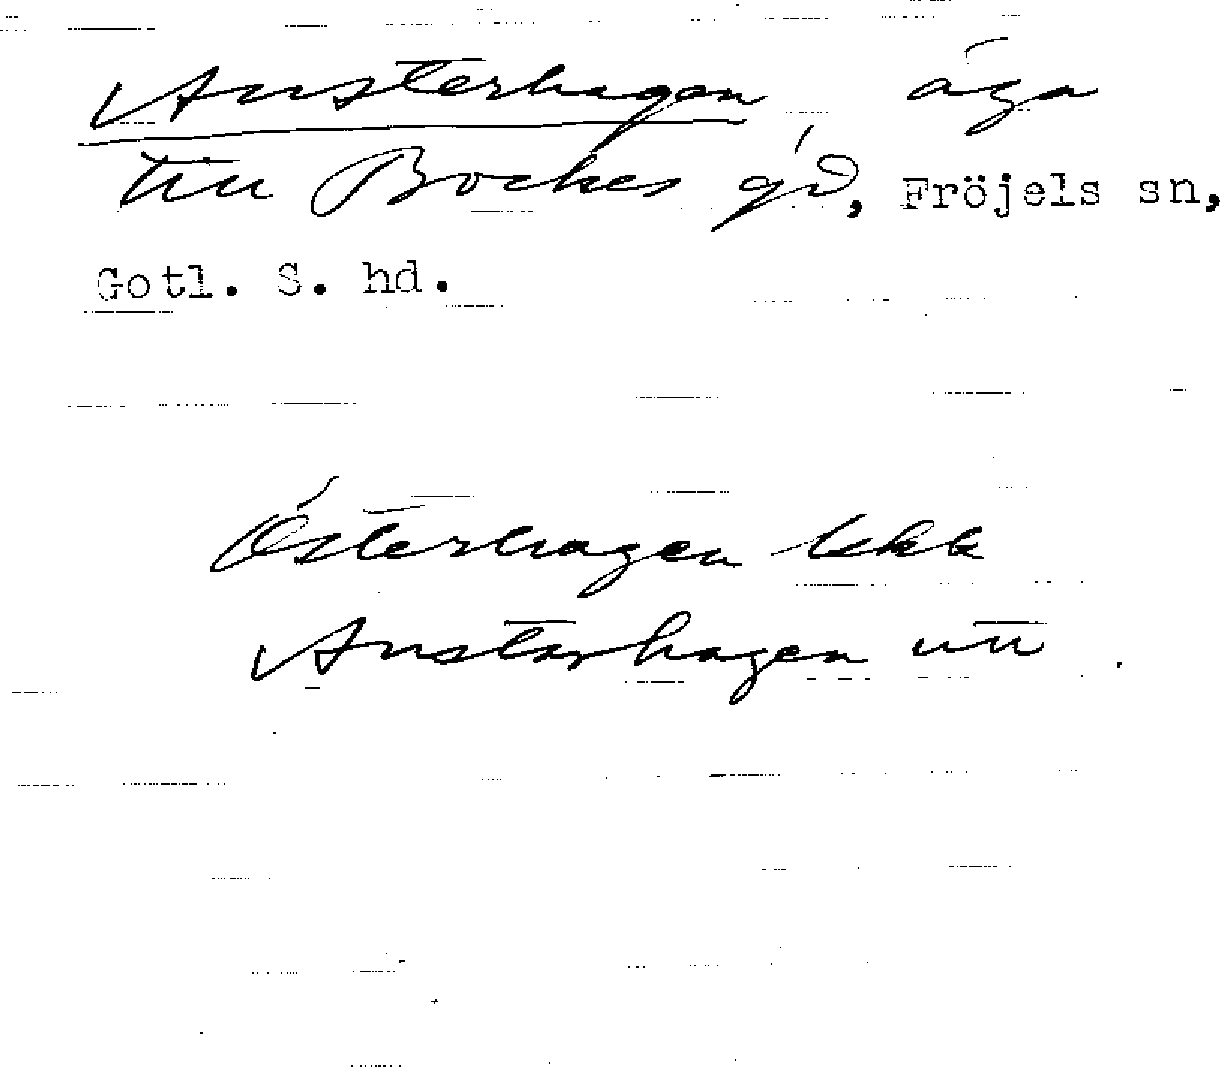 Austerhagen äga
till Bockes gd, Fröjels sn,
Gotl. S. hd.
Österhagen
Austarhagen utt